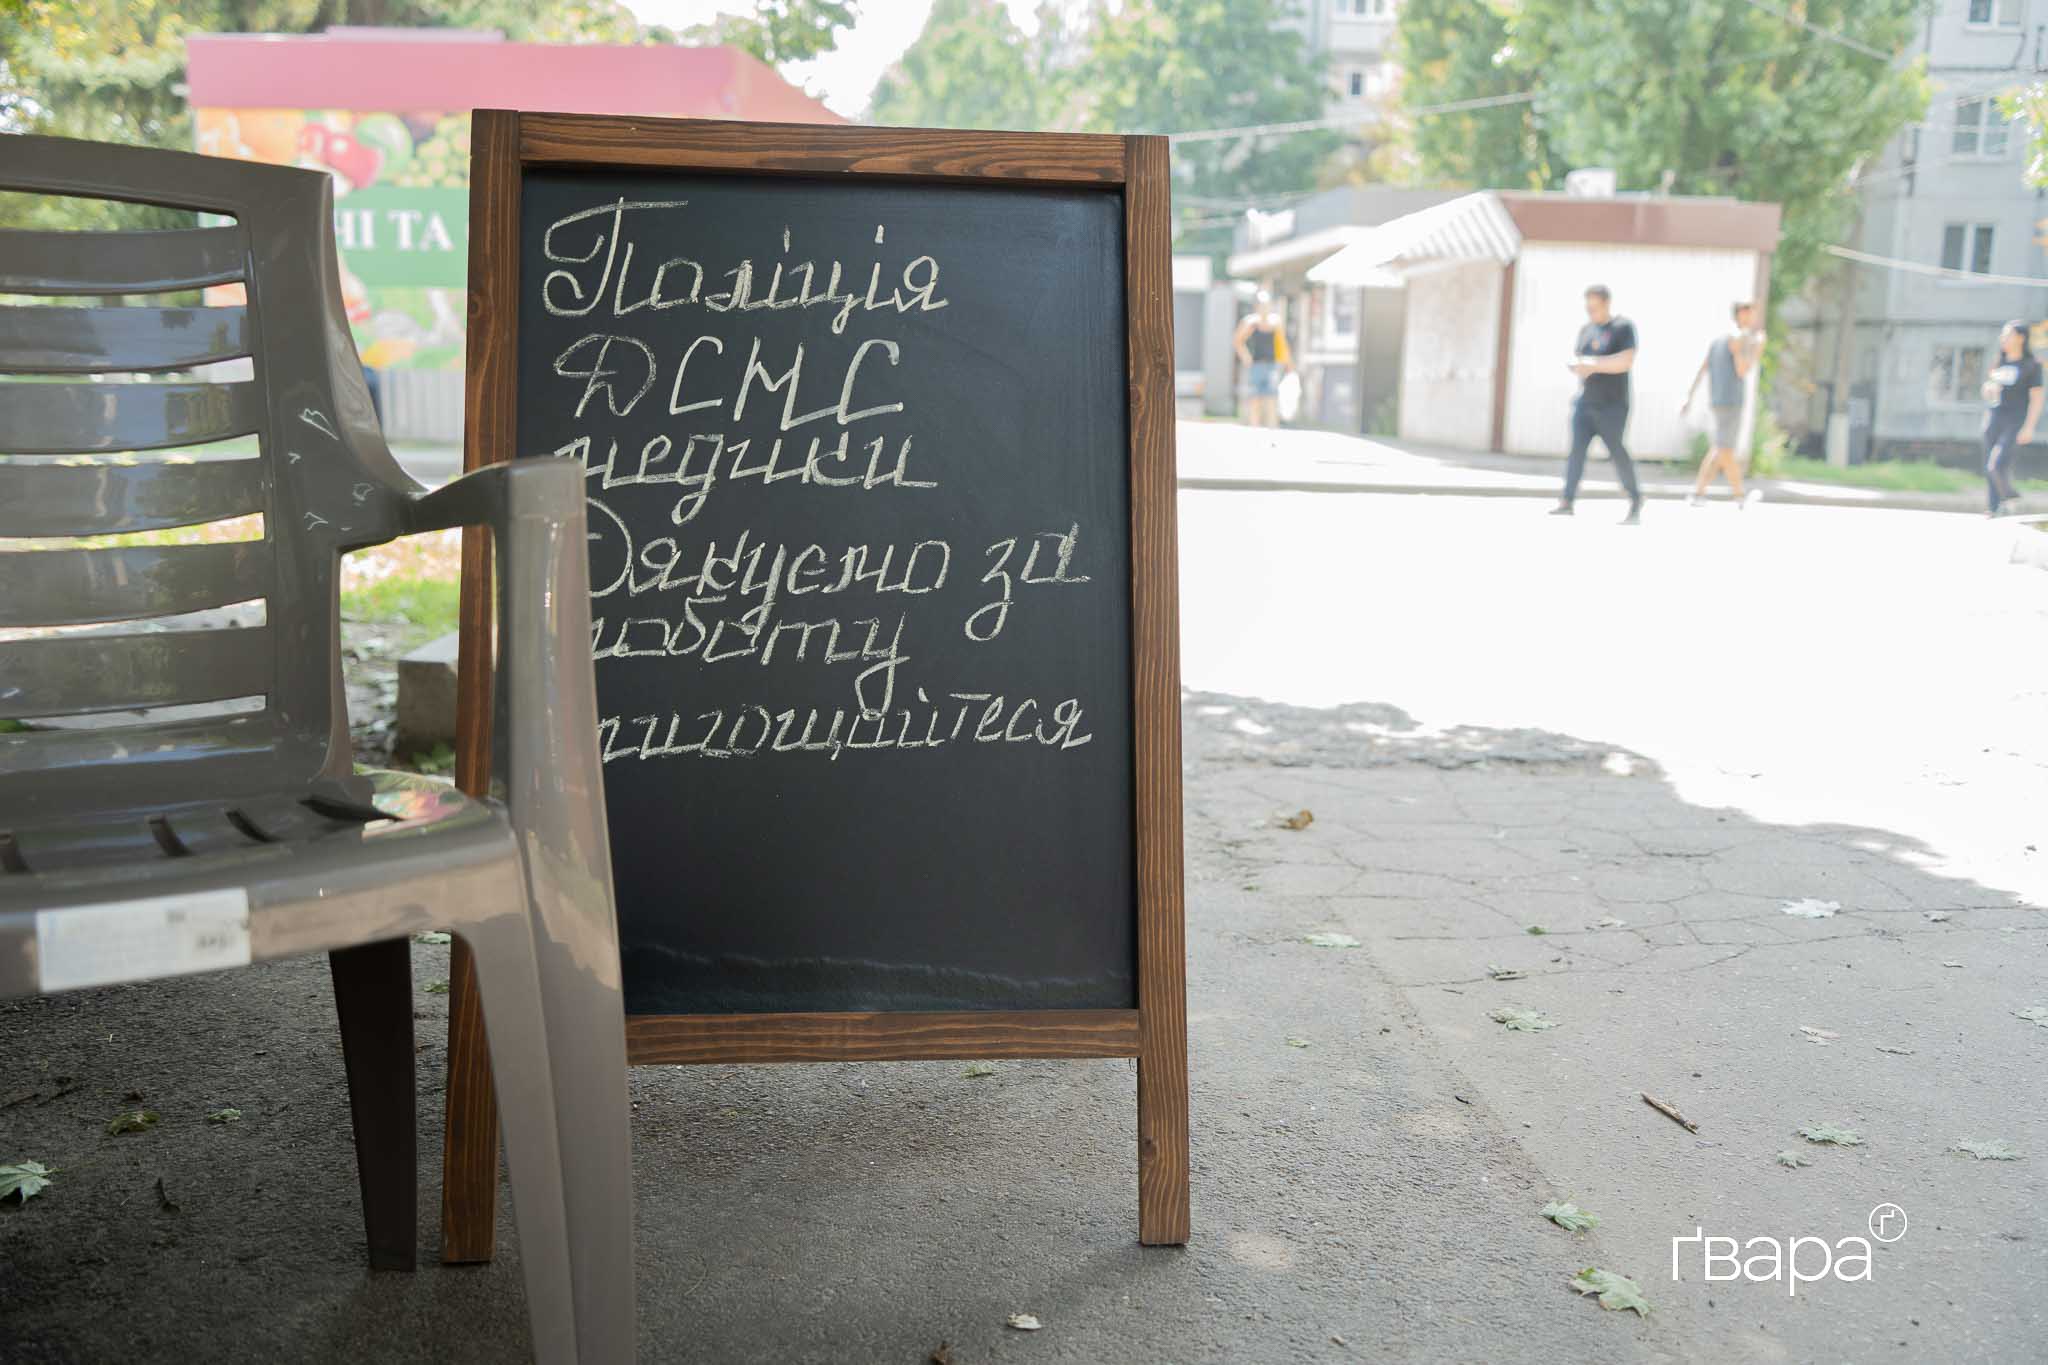 ЧІ ТА
Поліція
ДСМС
медики
Дякуємо за
роботу
пригощайтеся
ґвара